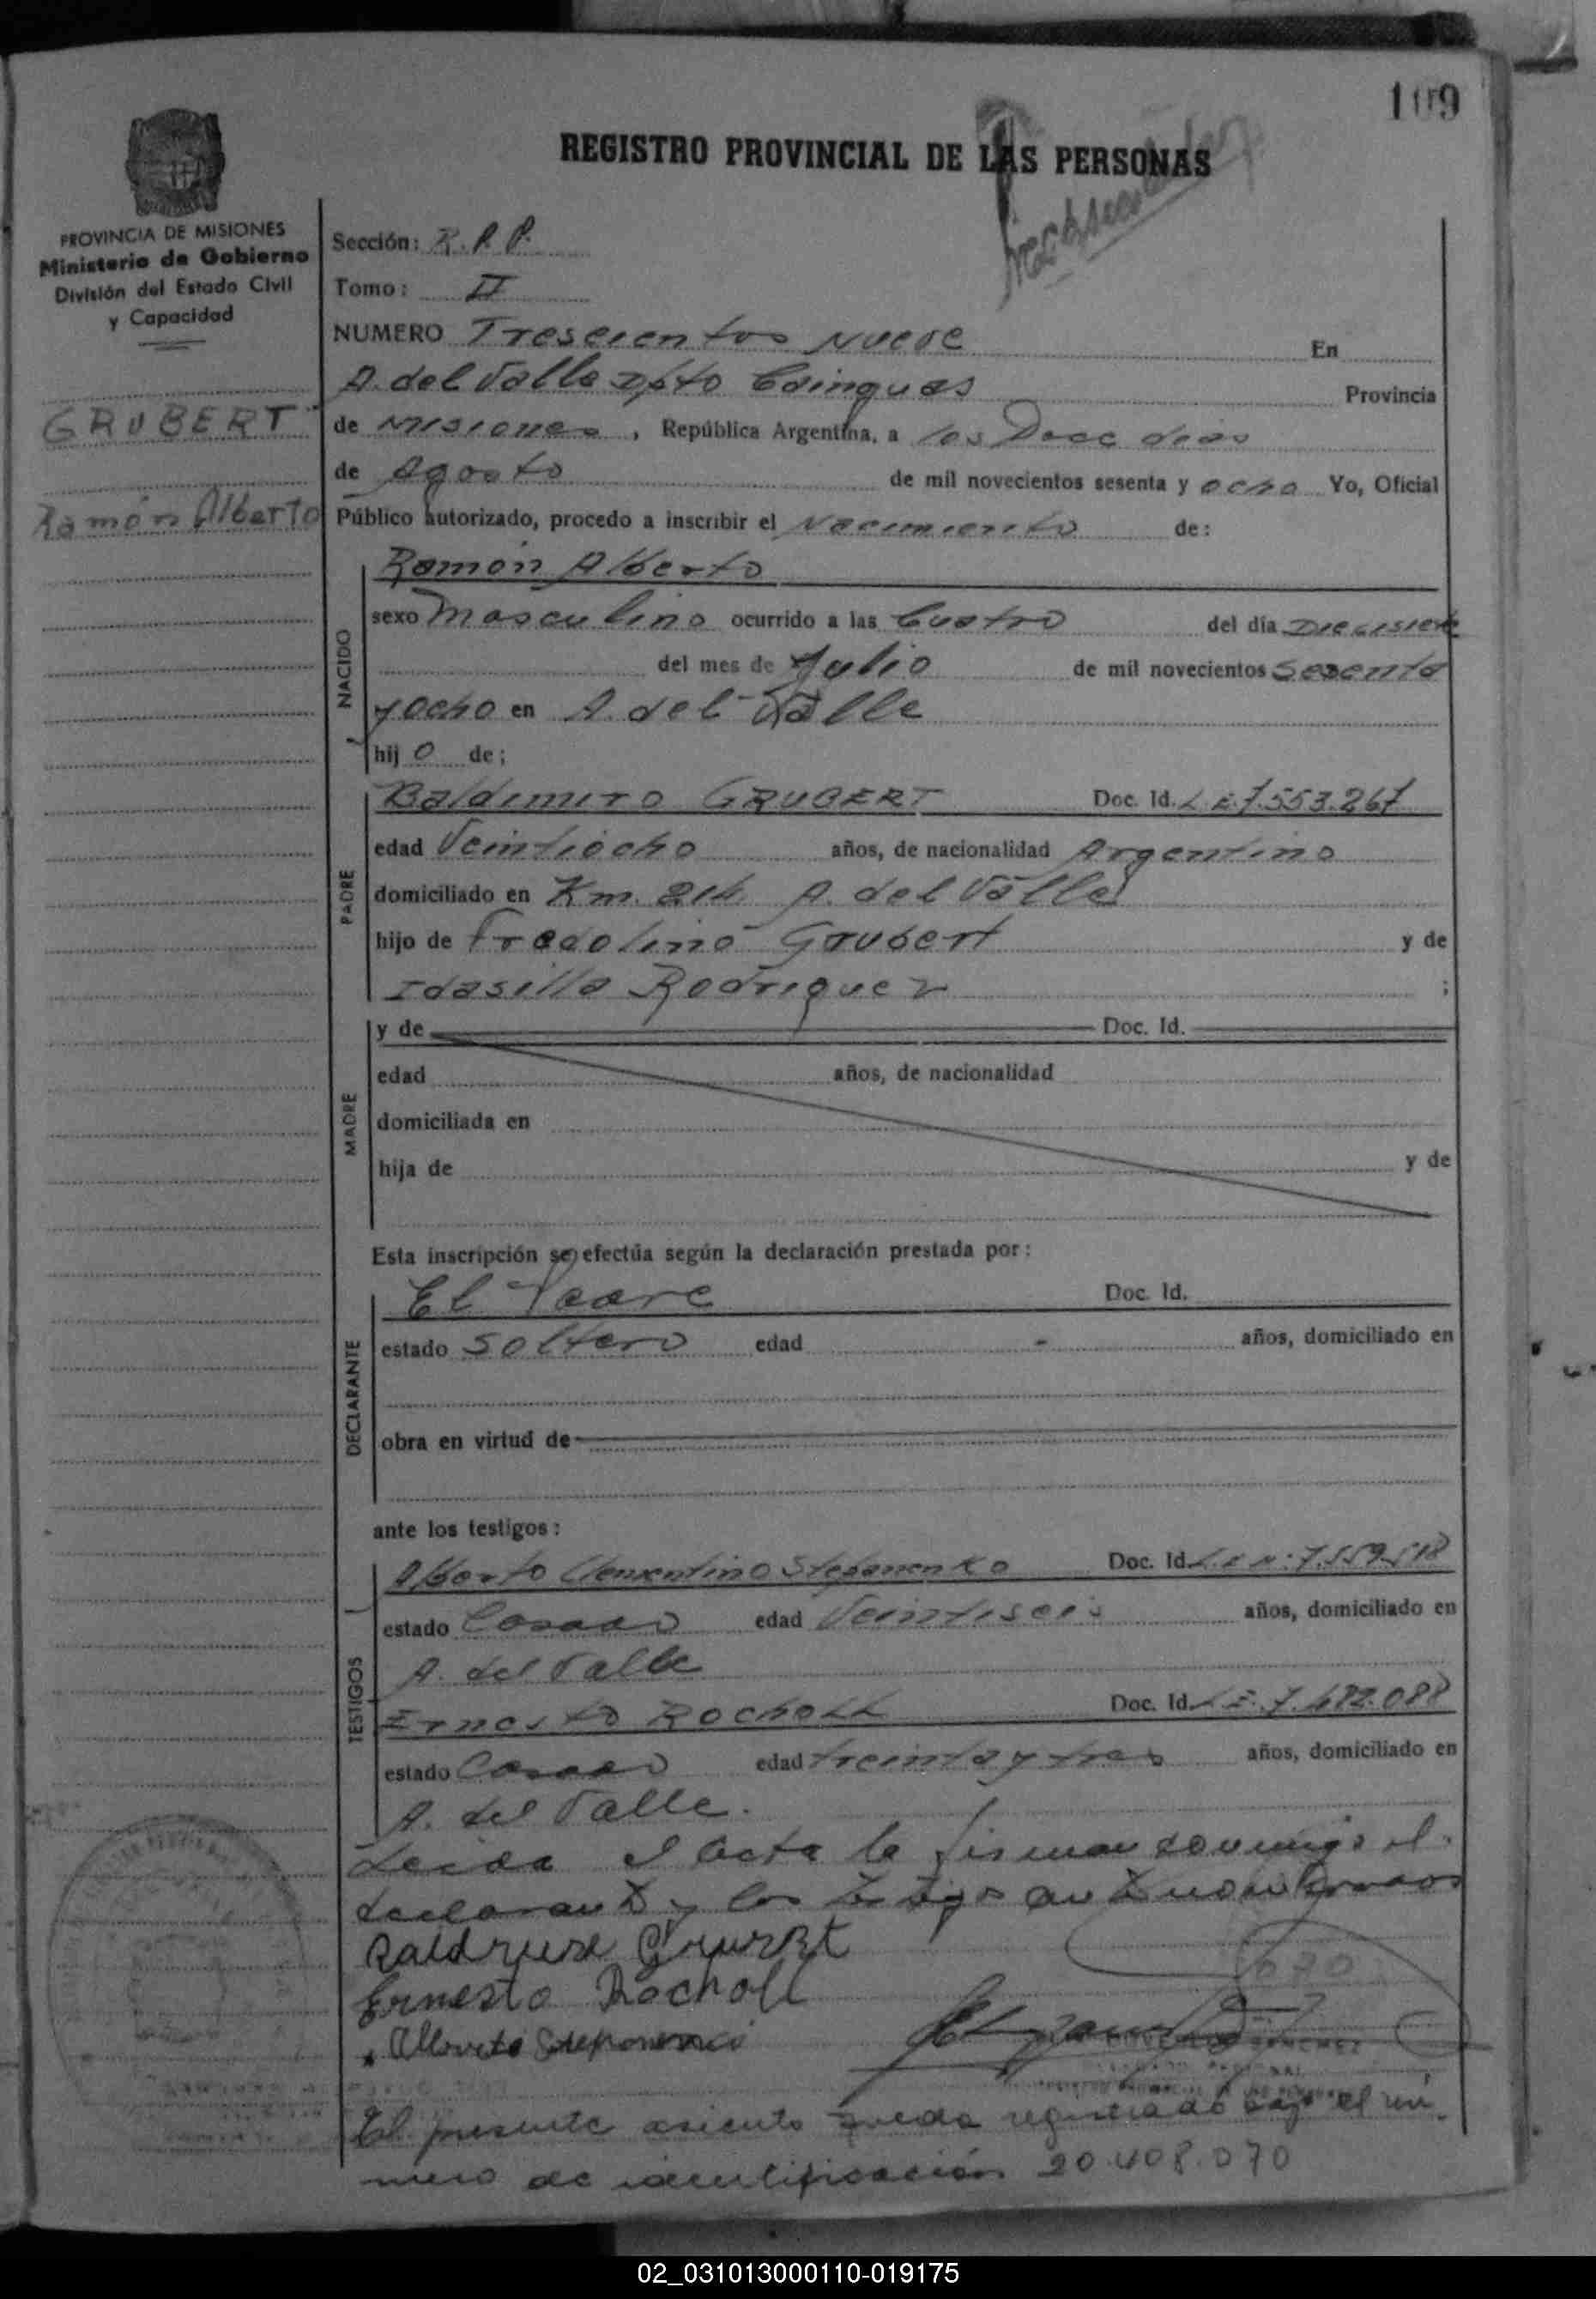 109
REGISTRO PROVINCIAL DE LAS PERSONAS
PROVINCIA DE MISIONES
Ministerio de Gobierno
División del Estado Civil
y Capacidad
GRUBERT
Ramón Alberto
Sección: R. P. P.
Tomo: II
NUMERO Trescientos Nueve En
A. del Valle Dpto Cainguas Provincia
de Misiones, República Argentina, a los Doce dias
de Agosto de mil novecientos sesenta y ocho Yo, Oficial
Público autorizado, procedo a inscribir el Nacimiento de:
NACIDO
Ramón Alberto
sexo Masculino ocurrido a las Cuatro del día Diecisiete
del mes de Julio de mil novecientos Sesenta
y ocho en A. del Valle
hijo de;
PADRE
Baldimiro GRUBERT Doc. Id. L.E. 7.553.267
edad Veintiocho años, de nacionalidad Argentino
domiciliado en Km. 214. A. del Valle
hijo de Fredolino Grubert y de
Idasilla Rodriguez ;
MADRE
y de Doc. Id.
edad años, de nacionalidad
domiciliada en
hija de y de
Esta inscripción se efectúa según la declaración prestada por:
DECLARANTE
El Padre Doc. Id.
estado Soltero edad - años, domiciliado en
obra en virtud de
ante los testigos:
TESTIGOS
Alberto Clementino Stepanenko Doc. Id. L.E N: 7.559.518
estado Casado edad Veintiseis años, domiciliado en
A. del Valle
Ernesto Rocholl Doc. Id. L.E. 7.482.088
estado Casado edad treinta y tres años, domiciliado en
A. del Valle.
Leida el acta la firman conmigo el
declarante y los testigos
Ernesto Rocholl
Alberto
El presente asiento queda registrado bajo el nú-
mero de identificación 20.408.070
02_031013000110-019175